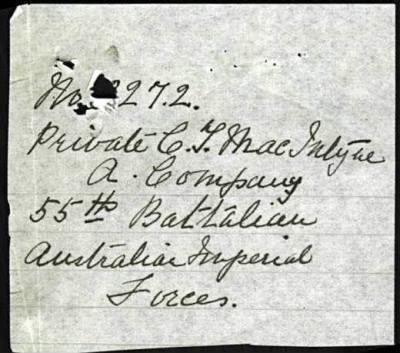 No. 272.
Private C. F. MacIntyne
A. Company
55th Battalian
Australian Imperial
Forces.